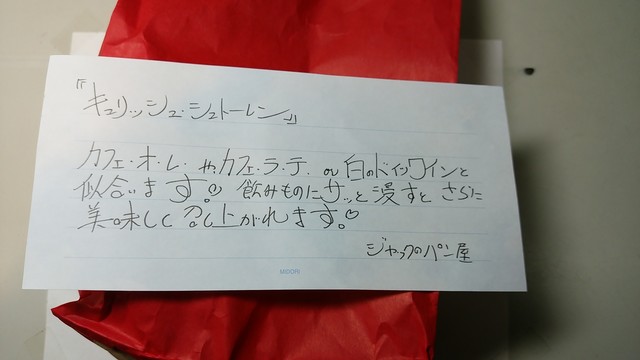 『キュリッシュ・シュトーレン』
カフェ・オ・レ やカフェ・ラ・テ. or 白のドイツワインと
似合います♡ 飲みものにサッと浸すと さらに
美味しく召し上がれます♡
ジャックのパン屋
MIDORI